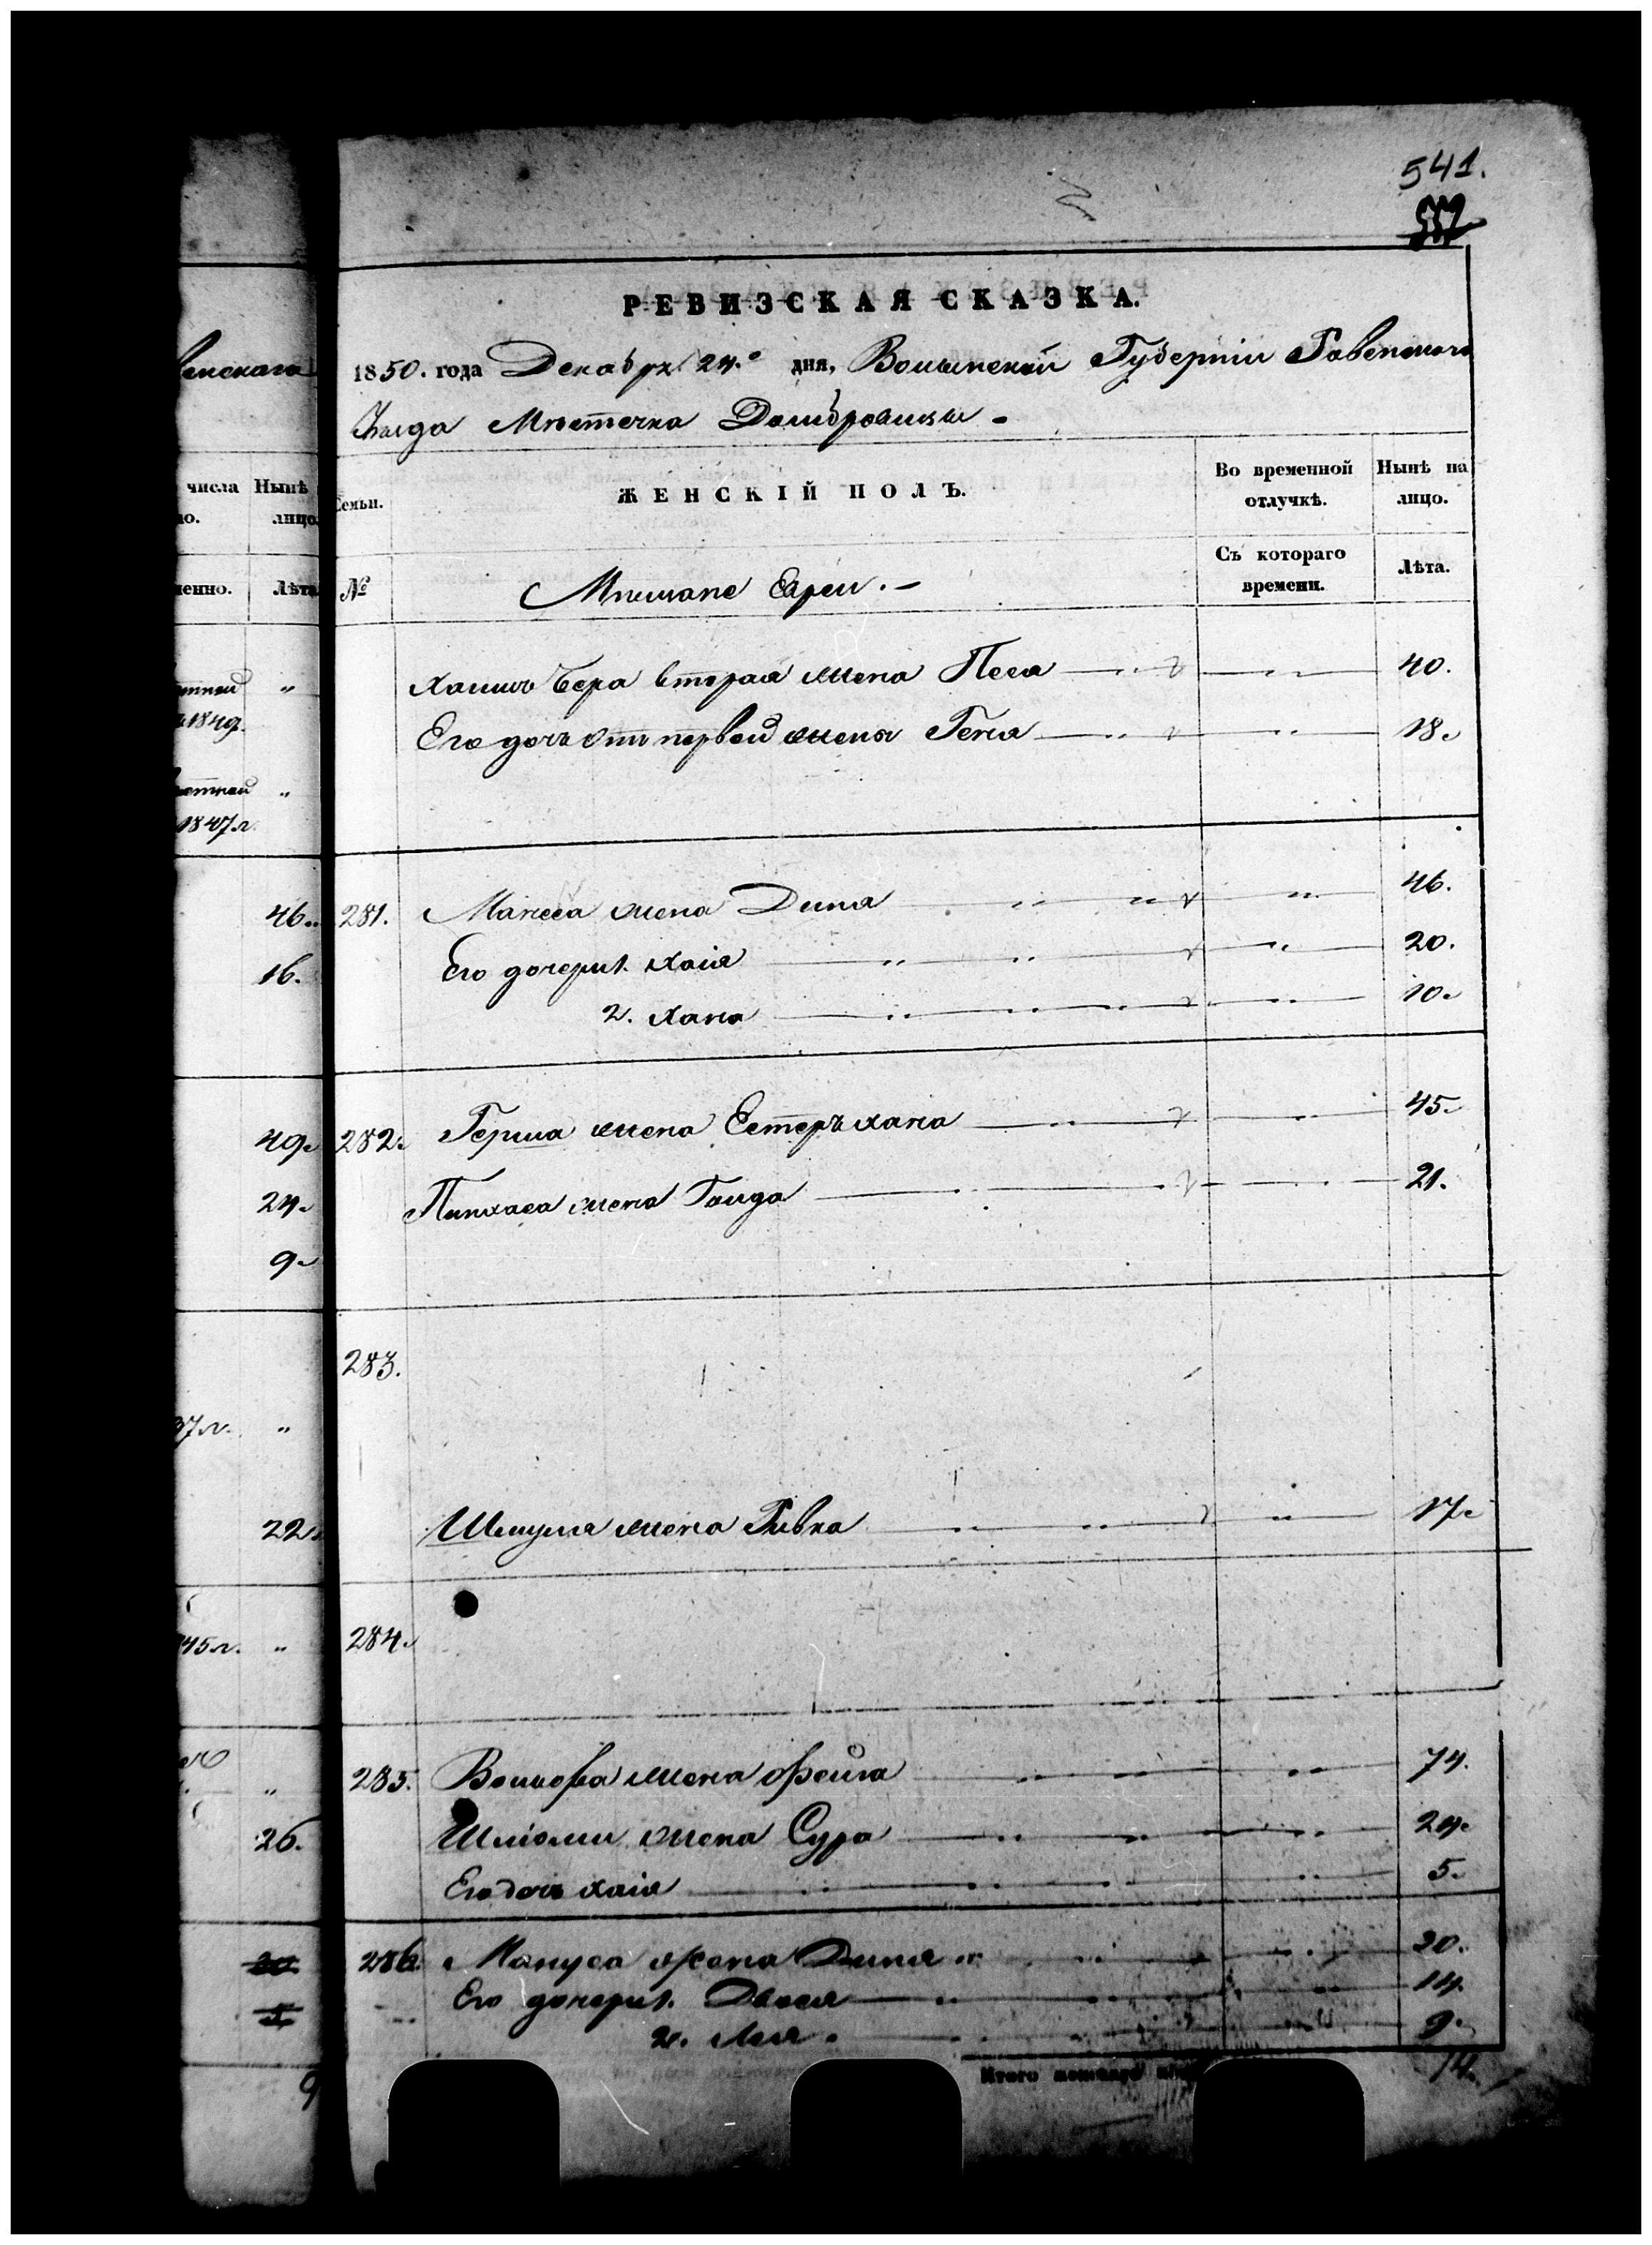 541.
РЕВИЗСКАЯ СКАЗКА.
1850. года Декабря 24.º дня, Волынской Губерніи Ровенскаго
Уѣзда Мѣстечка Домбровицы -
Семьи. ЖЕНСКІЙ ПОЛЪ. Во временной отлучкѣ. Нынѣ на лицо.
№ Мѣщане Евреи. - Съ котораго времени. Лѣта.
Хаимъ Бера вторая жена Песя 40.
Его дочь отъ первой жены Геня 18.
281. Манеса жена Диня 46.
Его дочери 1. Хаія 20.
2. Хана 10.
282. Герша жена Естеръ Хана 45.
Пинхаса жена Голда 21.
283.
Шмуля жена Ривка 17.
284.
285. Вольфа жена Фейга 74.
Шліомы жена Сура 24.
Его дочь Хаія 5.
286. Мануса жена Диня 20.
Его дочери 1. Двося 14.
2. Лея 9.
Итого 14.
венскаго
числа Нынѣ
но. лицо.
менно. Лѣта
"
1849.
"
1847 г.
46.
16.
49.
24.
9.
37 г. "
22.
45 г. "
"
26.
20.
5.
9